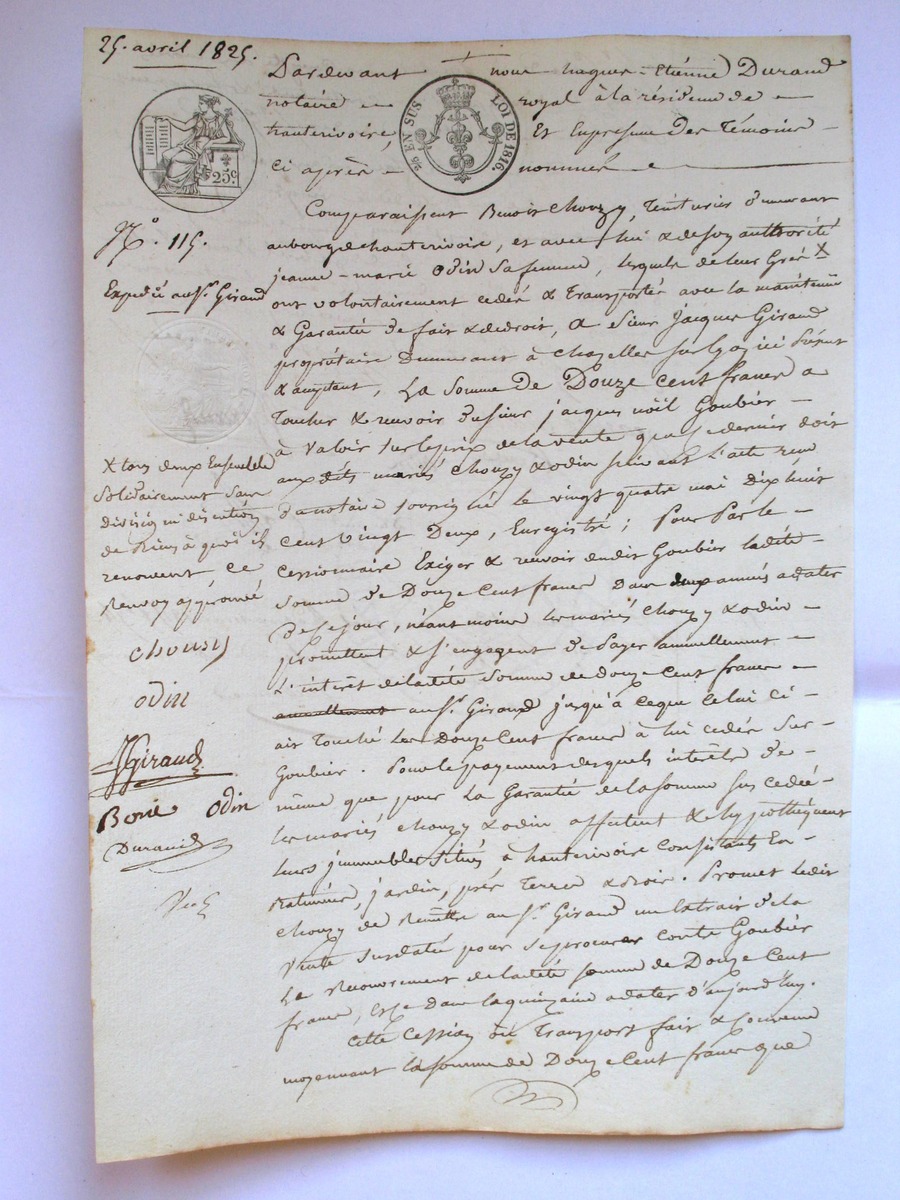 25. avril 1825.
Pardevant nous hugues-Etienne Durand
notaire royal à la résidence de
hauterivoire, Et En presence des Témoins
ci après nommés
25 EN SUS LOI DE 1816.
25c.
N.o 115.
Expedié au Sr. Giraud
Comparaissent Benoit Chouzy, Teinturier demeurant
au bourg de hauterivoire, et avec lui & de son authorité
jeanne-marie Odin sa femme, lesquels de leur Gré X
ont volontairement cédé & Transporté avec la maintenue
& Garantie de fait & de droit, a Sieur Jacques Giraud
propriétaire demeurant à Chazelles sur Lyon ici Présent
& acceptant, La Somme De Douze Cent francs a
Toucher & recevoir du sieur jacques noël Goubier
à valoir sur le prix de la vente que ce dernier doit
aux dits mariés Chouzy & odin suivant l'acte reçu
du notaire soussigné le vingt quatre mai Dix huit
cent vingt Deux, Enregistré; Pour Par le
cessionnaire Exiger & recevoir dudit Goubier ladite
somme de Douze Cent francs Dans deux années à dater
De ce jour, néant moins les mariés Chouzy & odin
promettent & s'engagent de Payer annuellement
L'intérêt de ladite Somme de douze Cent francs
annuellement au Sr. Giraud jusqu'à ce que celui ci
ait Touché les Douze Cent francs à lui cédés Sur
Goubier. Pour le payement desquels intérêts de
même que pour La Garantie de la somme sus cédée
les mariés Chouzy & odin affectent & hypothéquent
leurs immeubles Situés à hauterivoire Consistants En
Batiments, jardin, prés Terres & bois. Promet ledit
Chouzy de Remettre au Sr. Giraud un Extrait de la
vente susdatée pour se procurer contre Goubier
Le Recouvrement de ladite somme de Douze Cent
francs, Et ce Dans la quinzaine a dater d'aujourd'huy.
Cette Cession ou Transport fait & convenu
moyennant la somme de Douze Cent francs que
X tous deux Ensemble
solidairement sans
division ni discution
de Biens à quoi ils
renoncent ce
Renvoy approuvé
chousy
odin
JGiraud
Borie Odin
Durand